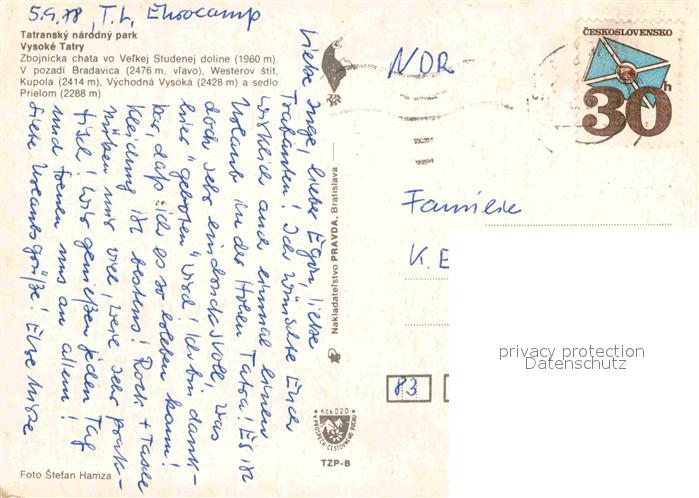 5.9.78, T.L. Eurocamp
Tatranský národný park
Vysoké Tatry
Zbojnícka chata vo Veľkej Studenej doline (1960 m).
V pozadí Bradavica (2476 m, vľavo), Westerov štít,
Kupola (2414 m), Východná Vysoká (2428 m) a sedlo
Prielom (2288 m)
Liebe Inge, lieber Egon, liebe
Trabanten! Ich wünschte Euch
wirklich auch einmal einen
Urlaub in der Hohen Tatra! Es ist
doch sehr eindrucksvoll, was
hier "geboten" wird! Ich bin dank-
bar, daß ich es so erleben kann!
Kleidung ist bestens! Rock + Tasche
nützen mir viel, weil sehr prak-
tisch! Wir genießen jeden Tag
und freuen uns an allem!
Liebe Urlaubsgrüße! Else
Foto Štefan Hamza
Nakladateľstvo PRAVDA, Bratislava
Kčs 020
V PROSPECH CESTOVNÉHO RUCHU
TZP-B
ČESKOSLOVENSKO
30h
NDR
Familie
K. E
83
privacy protection
Datenschutz